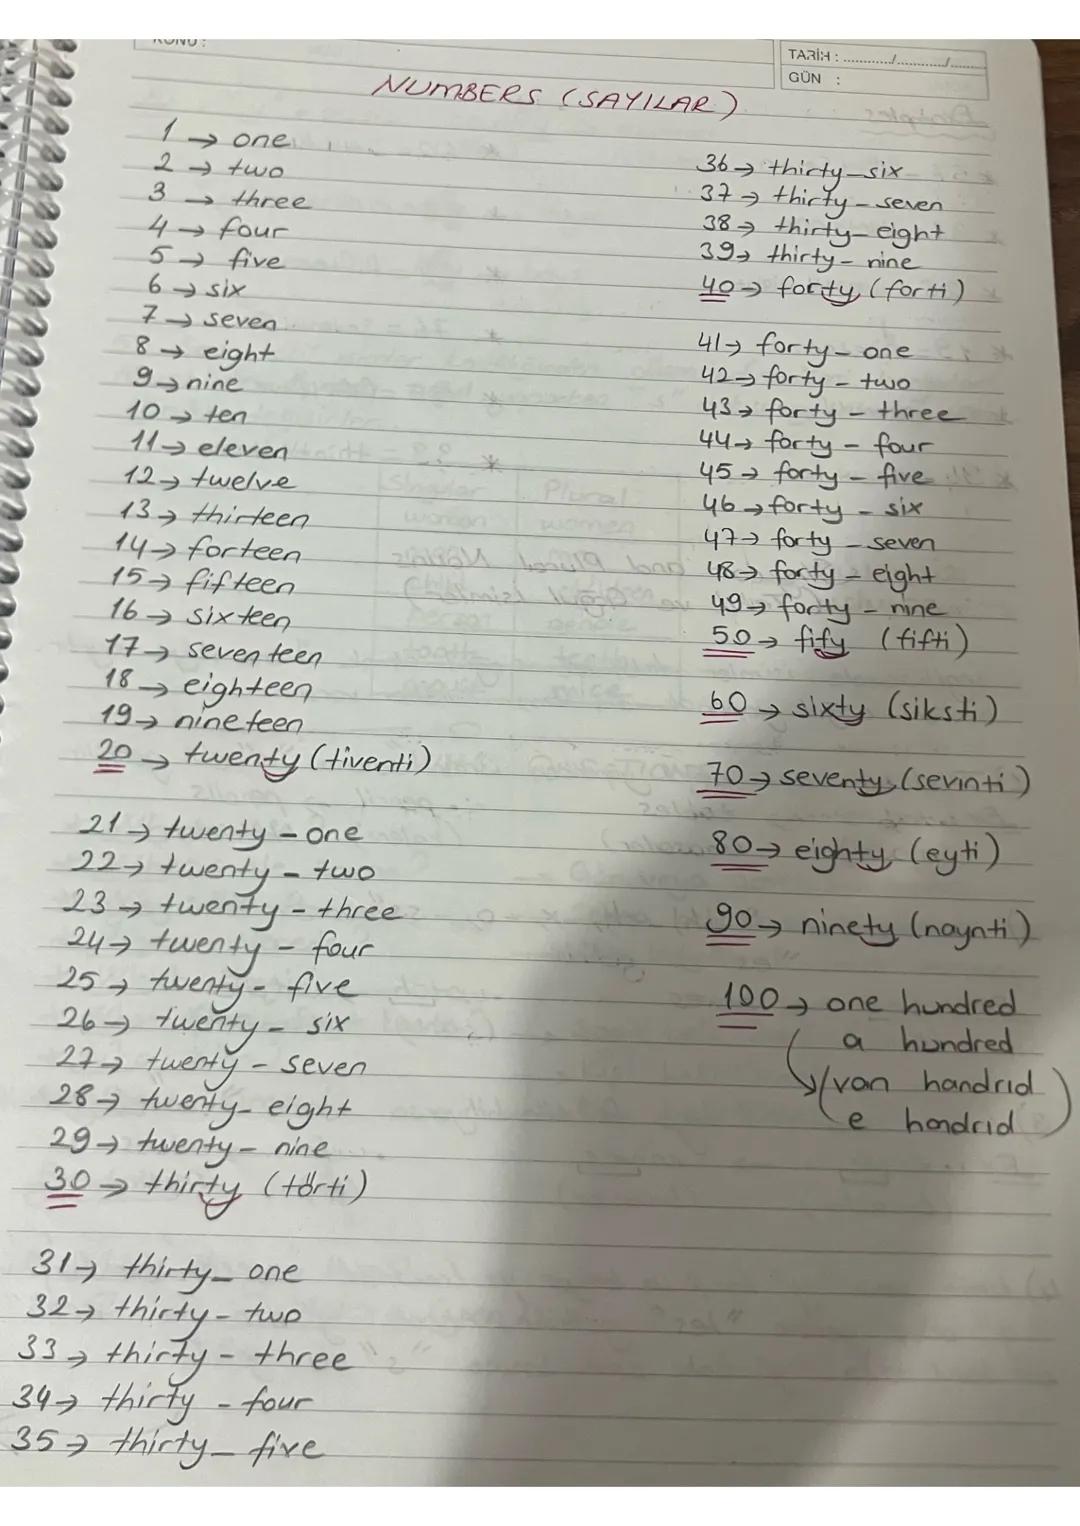 KONU :
TARİH : ............/............/............
GÜN :
NUMBERS (SAYILAR)
1 → one
2 → two
3 → three
4 → four
5 → five
6 → six
7 → seven
8 → eight
9 → nine
10 → ten
11 → eleven
12 → twelve
13 → thirteen
14 → forteen
15 → fifteen
16 → sixteen
17 → seventeen
18 → eighteen
19 → nineteen
20 → twenty (tiventi)
21 → twenty - one
22 → twenty - two
23 → twenty - three
24 → twenty - four
25 → twenty - five
26 → twenty - six
27 → twenty - seven
28 → twenty - eight
29 → twenty - nine
30 → thirty (törti)
31 → thirty - one
32 → thirty - two
33 → thirty - three
34 → thirty - four
35 → thirty - five
36 → thirty - six
37 → thirty - seven
38 → thirty - eight
39 → thirty - nine
40 → forty (forti)
41 → forty - one
42 → forty - two
43 → forty - three
44 → forty - four
45 → forty - five
46 → forty - six
47 → forty - seven
48 → forty - eight
49 → forty - nine
50 → fify (fifti)
60 → sixty (siksti)
70 → seventy (sevınti)
80 → eighty (eyti)
90 → ninety (naynti)
100 → one hundred
a hundred
(van handrıd
e handrıd)